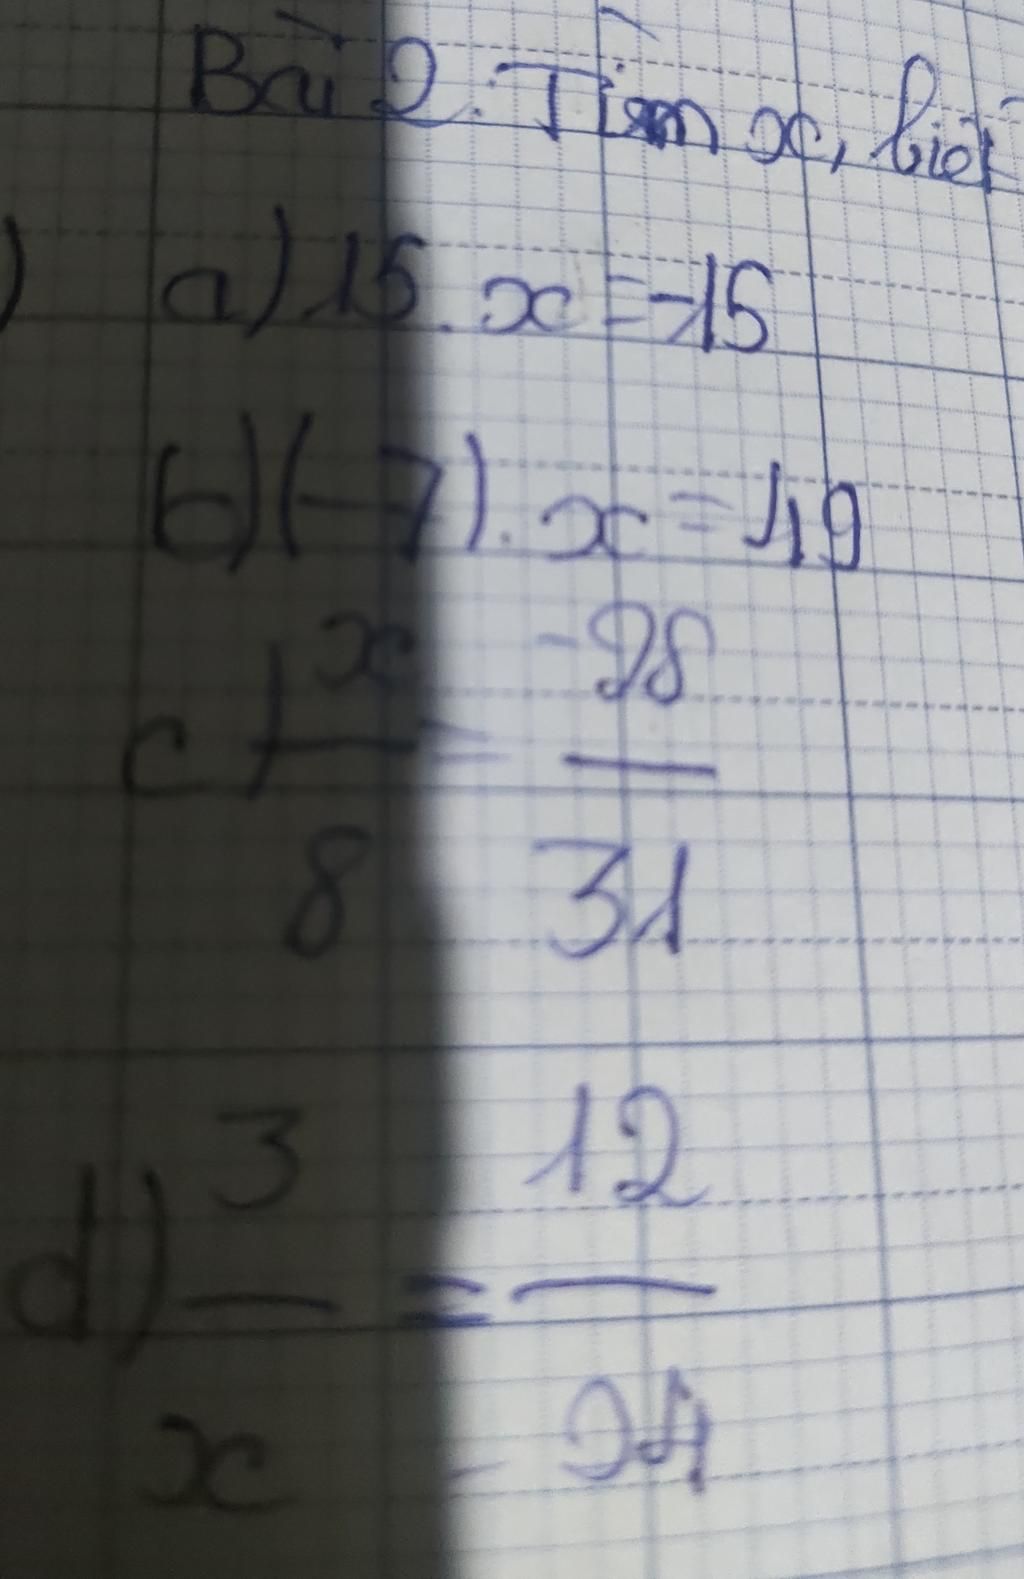 Bài 2. Tìm x, biết
) a) 15 . x = -15
b) (-7) . x = 49
c) x/8 = -28/31
d) 3/x = 12/-24